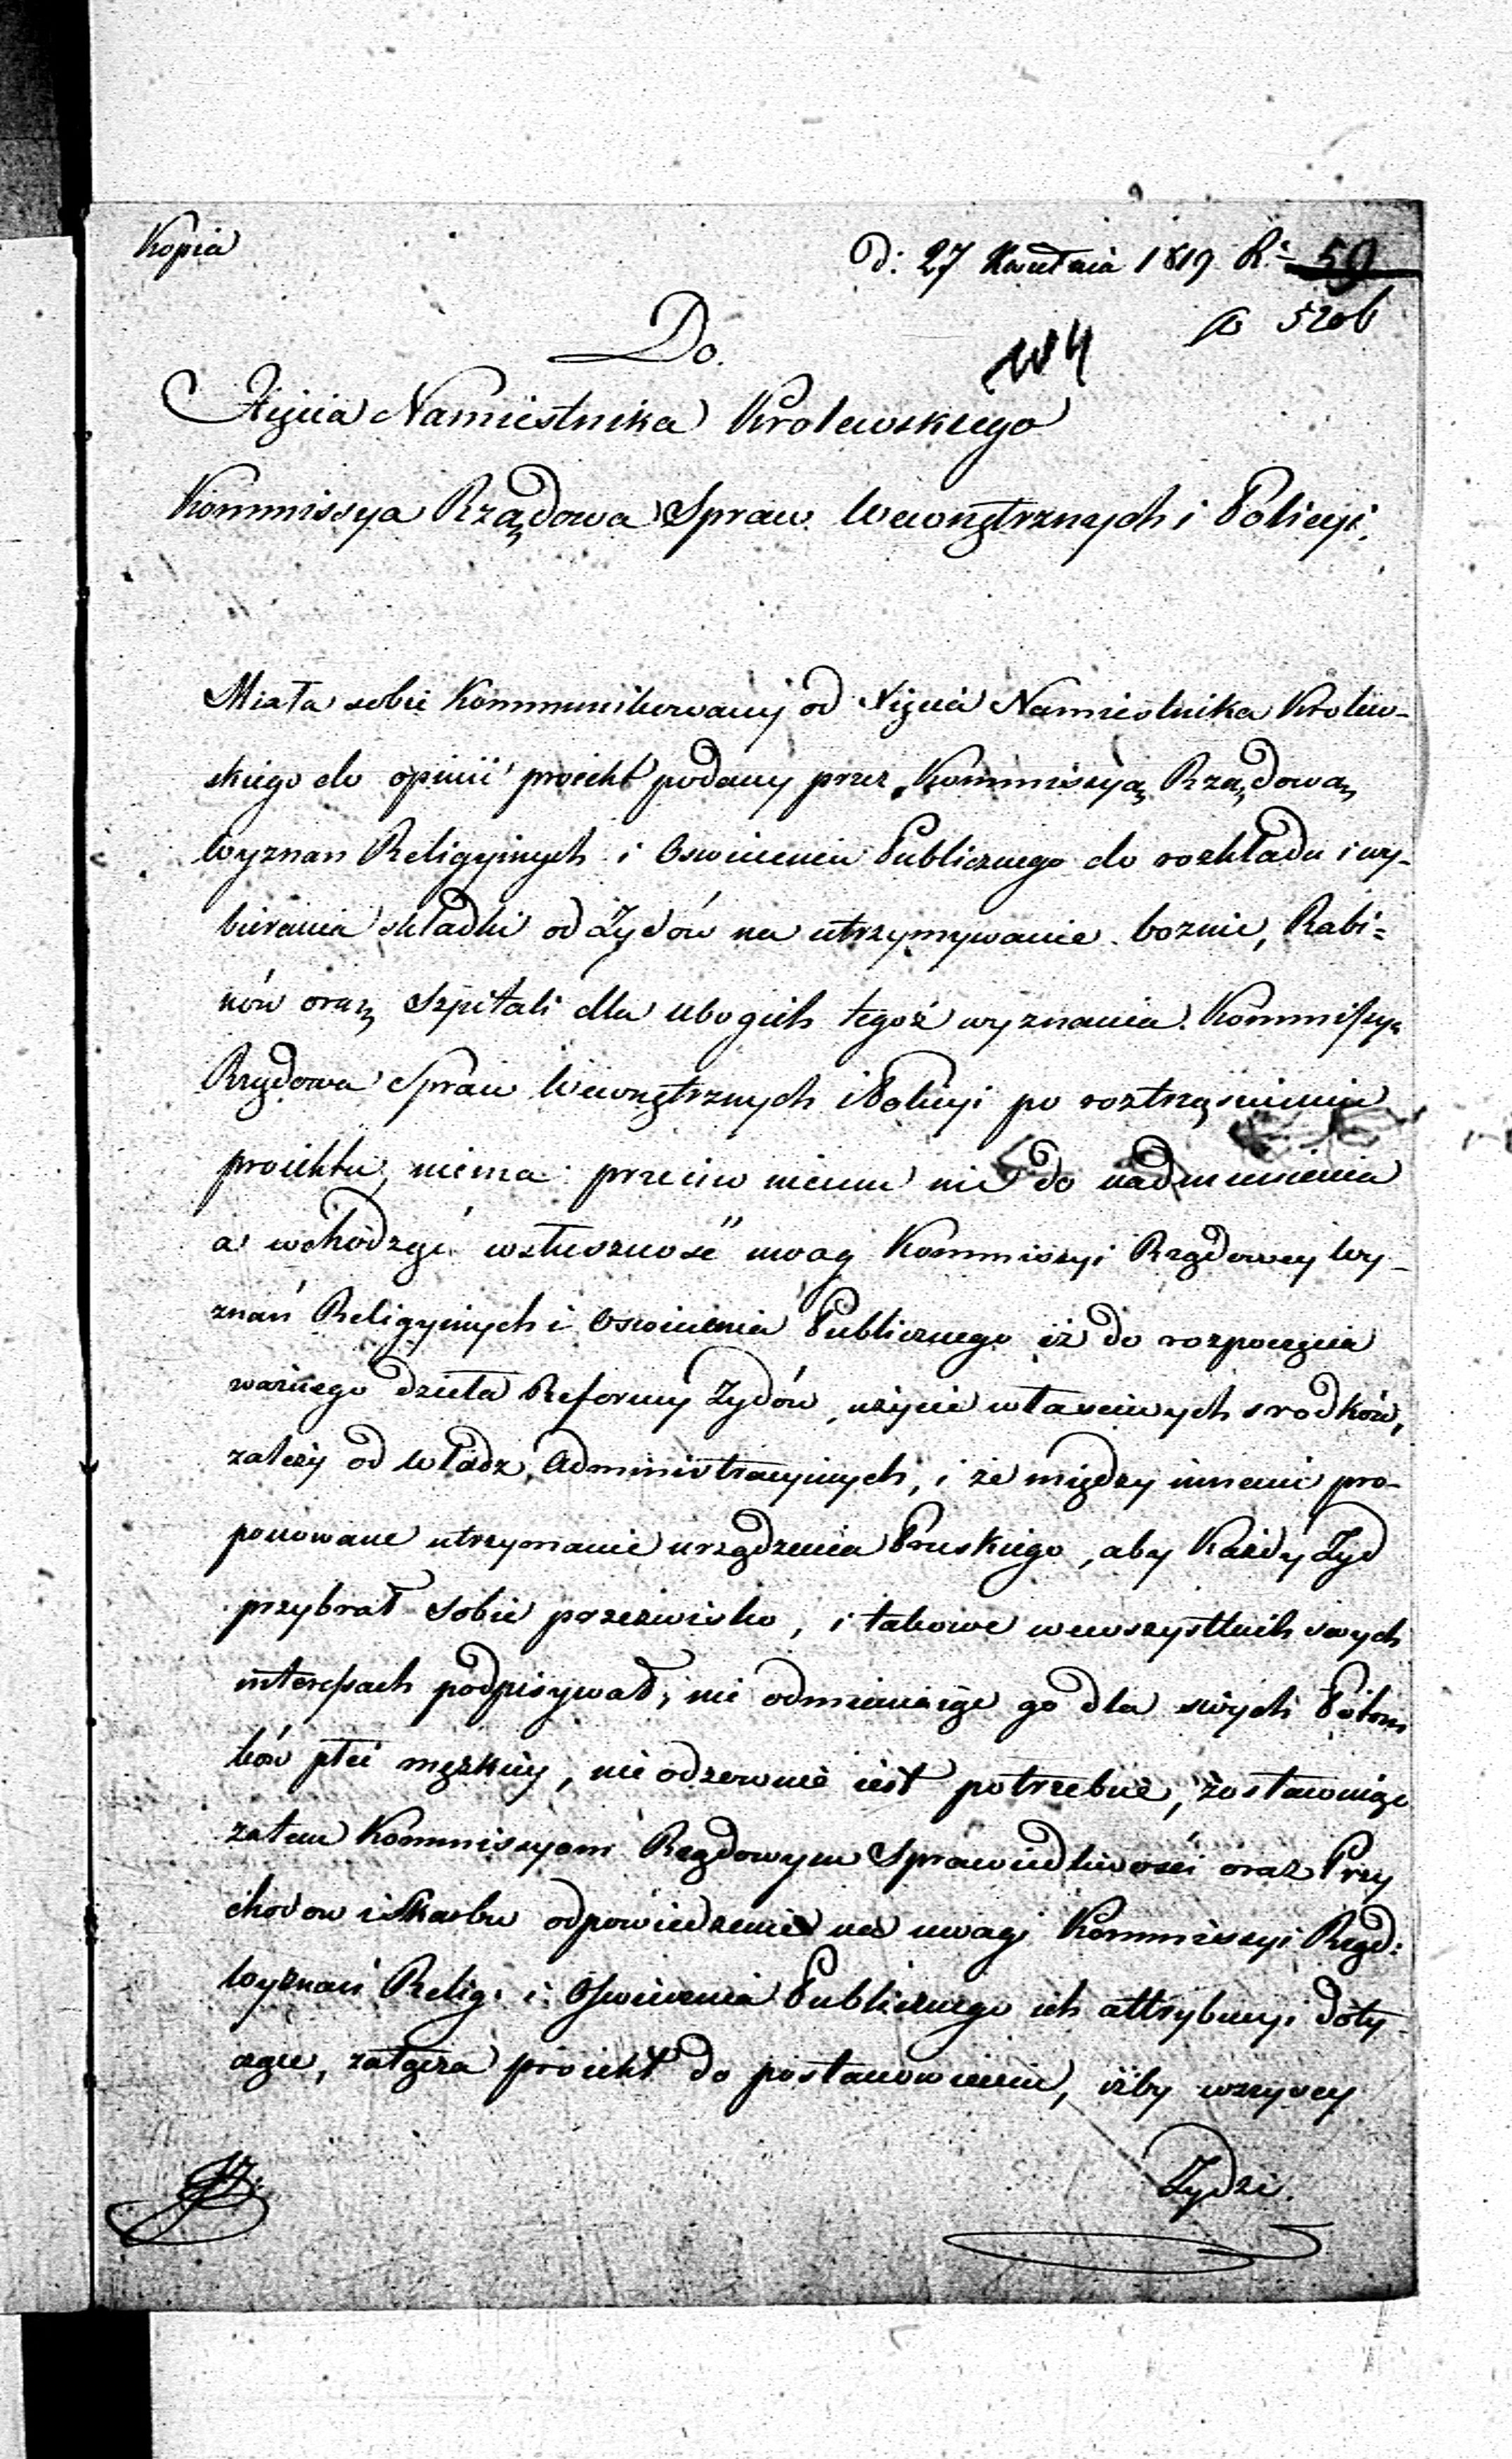 Kopia
d: 27 Kwietnia 1819 R:
59
5206
Do.
Xięcia Namiestnika Krolewskiego
Kommissya Rządowa Spraw Wewnętrznych i Policyi.
Miała sobie Kommunikowany od Xięcia Namiestnika Krolew-
skiego do opinii proiekt podany przez Kommissyą Rządową
Wyznan Religyinych i Oswiecenia Publicznego do rozkładu i wy-
bierania składki od Żydów na utrzymywanie boznic, Rabi=
nów oraz Szpitali dla ubogich tegoż wyznania. Kommissya
Rządowa Spraw Wewnętrznych i Policyi po roztrząsnieniu
proiektu, niema przeciw niemu nic do nadmienienia
a wchodząc w słuszność uwag Kommissyi Rządowey Wy-
znań Religyinych i Oswiecenia Publicznego iż do rozpoczęcia
ważnego dzieła Reformy Żydów, użycie własciwych srodków,
zależy od Władz Administracyinych, i że między innemi pro-
ponowane utrzymanie urządzenia Pruskiego, aby Każdy Żyd
przybrał sobie przezwisko, i takowe we wszystkich swych
interessach podpisywał, nie odmieniaiąc go dla swych Potom
ków płci męzkiey, nieodzownie iest potrzebne, zostawuiąc
zatem Kommissyom Rządowym Sprawiedliwości oraz Przy
chodow i Skarbu odpowiedzenie na uwagi Kommissyi Rząd:
Wyznań Relig. i Oswiecenia Publicznego ich attrybucyi doty-
czące, załącza proiekt do postanowienia, iżby wszyscy
Żydzi.